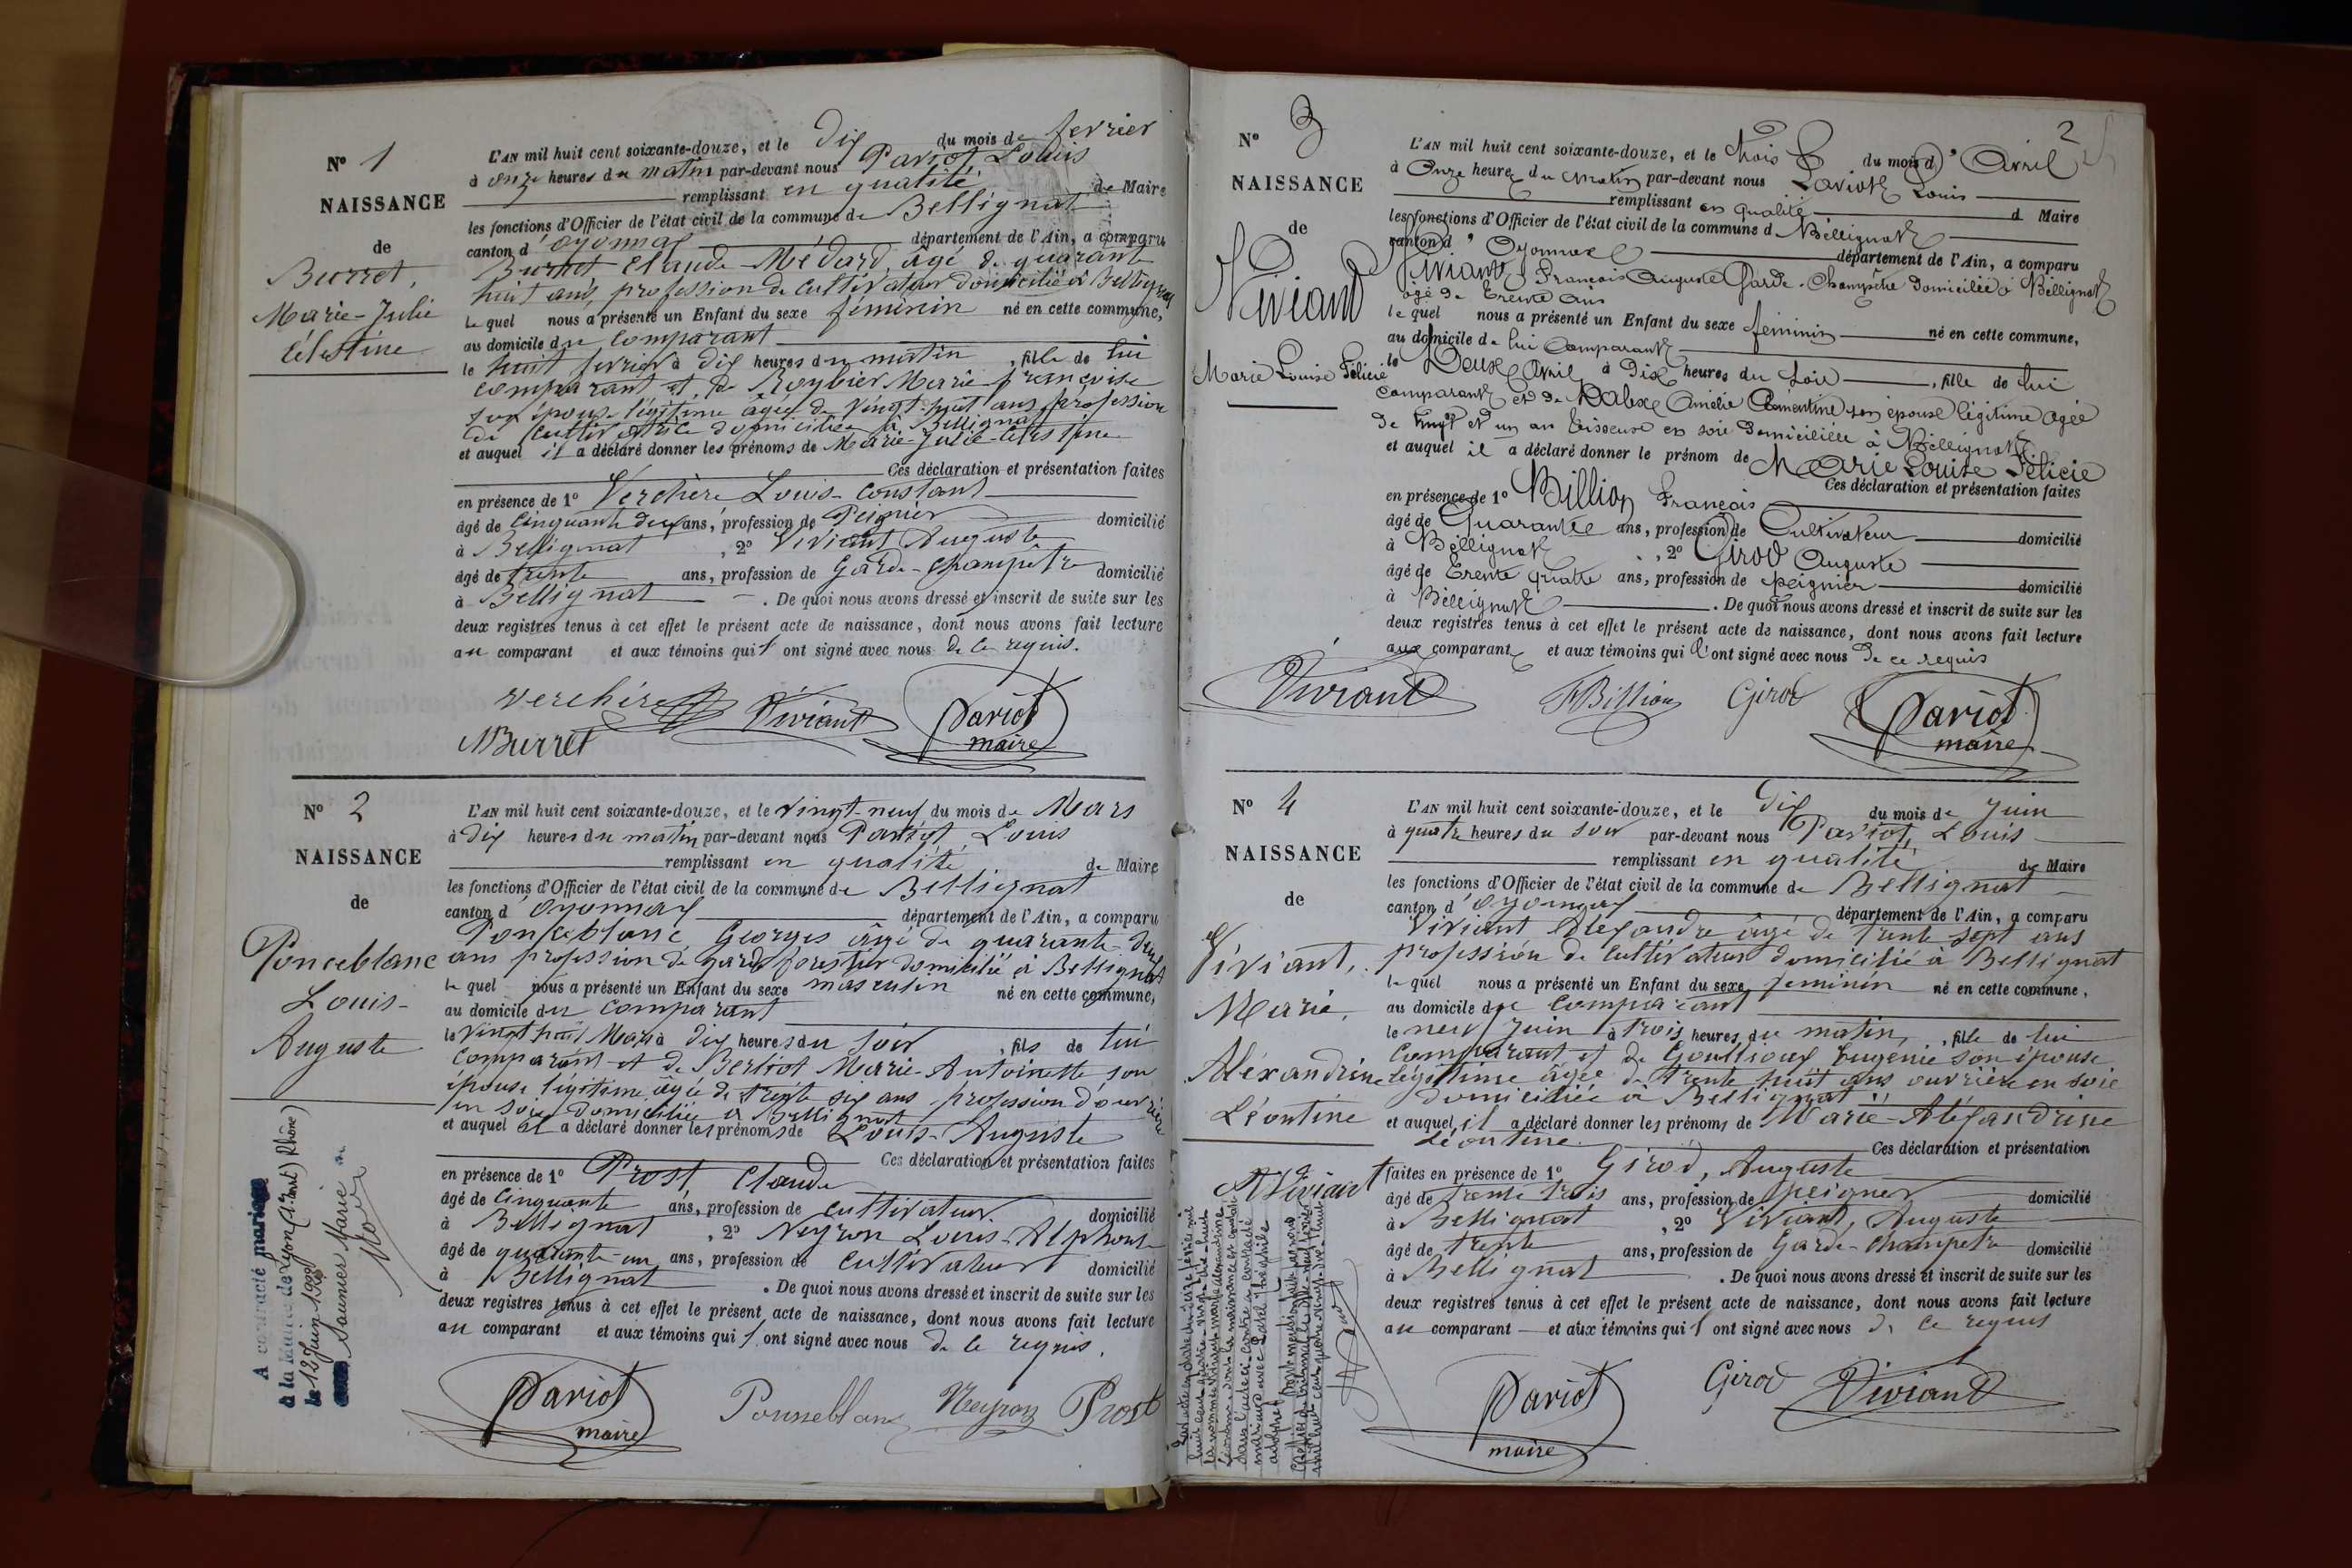 N° 1
NAISSANCE
de
Burret,
Marie-Julie
Célestine
L'AN mil huit cent soixante-douze, et le Dix du mois de fevrier
à onze heures du matin par-devant nous Pariot Louis
remplissant en qualité de Maire
les fonctions d'Officier de l'état civil de la commune de Bellignat
canton d'oyonnax département de l'Ain, a comparu
Burret Claude-Médard, âgé de quarante
huit ans, profession de Cultivateur domicilié à Bellignat
lequel nous a présenté un Enfant du sexe féminin né en cette commune,
au domicile du comparant
le huit fevrier à dix heures du matin, fille de lui
comparant et de Roybier Marie françoise
son épouse légitime âgée de vingt-huit ans profession
de Cultivatrice domiciliée à Bellignat
et auquel il a déclaré donner les prénoms de Marie-Julie-Célestine
Ces déclaration et présentation faites
en présence de 1° Verchère Louis-Constant
âgé de cinquante deux ans, profession de Peignier domicilié
à Bellignat, 2° Viviant Auguste
âgé de trente ans, profession de Garde-Champêtre domicilié
à Bellignat. De quoi nous avons dressé et inscrit de suite sur les
deux registres tenus à cet effet le présent acte de naissance, dont nous avons fait lecture
au comparant et aux témoins qui l'ont signé avec nous de ce requis.
Verchère Viviant Pariot
MBurret maire
N° 2
NAISSANCE
de
Ponceblanc
Louis-
Auguste
A contracté mariage
à la Mairie de Lyon (1er arrt) Rhône
le 12 Juin 1920
avec Saunier Marie
L'AN mil huit cent soixante-douze, et le vingt-neuf du mois de Mars
à dix heures du matin par-devant nous Pariot, Louis
remplissant en qualité de Maire
les fonctions d'Officier de l'état civil de la commune de Bellignat
canton d'oyonnax département de l'Ain, a comparu
Ponceblanc Georges âgé de quarante-deux
ans profession de garde forestier domicilié à Bellignat
lequel nous a présenté un Enfant du sexe masculin né en cette commune,
au domicile du comparant
le vingt huit Mars à dix heures du soir, fils de lui
comparant et de Berliot Marie-Antoinette son
épouse légitime âgée de trente six ans profession d'ouvrière
en soie domiciliée à Bellignat
et auquel il a déclaré donner les prénoms de Louis-Auguste
Ces déclaration et présentation faites
en présence de 1° Prost Claude
âgé de cinquante ans, profession de cultivateur domicilié
à Bellignat, 2° Neyron Louis-Alphonse
âgé de quarante-un ans, profession de cultivateur domicilié
à Bellignat. De quoi nous avons dressé et inscrit de suite sur les
deux registres tenus à cet effet le présent acte de naissance, dont nous avons fait lecture
au comparant et aux témoins qui l'ont signé avec nous de ce requis.
Pariot Ponseblanc Neyron Prost
maire
2
N° 3
NAISSANCE
de
Viviant
Marie Louise Félicie
L'AN mil huit cent soixante-douze, et le trois du mois d'Avril
à Onze heures du Matin par-devant nous Pariot Louis
remplissant en qualité d Maire
les fonctions d'Officier de l'état civil de la commune d Béllignat
canton d'Oyonnax département de l'Ain, a comparu
Viviant François Auguste Garde-Champêtre domiciliée à Béllignat
âgé de trente ans
lequel nous a présenté un Enfant du sexe féminin né en cette commune,
au domicile de lui Comparant
le Deux Avril à Dix heures du Soir, fille de lui
Comparant et de Dalex Amélie Clémentine son épouse légitime agée
de vingt et un an tisseuse en soie domiciliée à Béllignat
et auquel il a déclaré donner le prénom de Marie Louise Félicie
Ces déclaration et présentation faites
en présence de 1° Billion François
âgé de Quarante ans, profession de Cultivateur domicilié
à Béllignat, 2° Girod Auguste
âgé de trente quatre ans, profession de peignier domicilié
à Béllignat. De quoi nous avons dressé et inscrit de suite sur les
deux registres tenus à cet effet le présent acte de naissance, dont nous avons fait lecture
aux comparants et aux témoins qui l'ont signé avec nous de ce requis
Viviant FBillion Girod Pariot
maire
N° 4
NAISSANCE
de
Viviant,
Marie,
Aléxandrine
Léontine
AViviant
L'AN mil huit cent soixante-douze, et le Dix du mois de Juin
à quatre heures du soir par-devant nous Pariot, Louis
remplissant en qualité de Maire
les fonctions d'Officier de l'état civil de la commune de Bellignat
canton d'oyonnax département de l'Ain, a comparu
Viviant Alexandre âgé de trente sept ans
profession de Cultivateur domicilié à Bellignat
lequel nous a présenté un Enfant du sexe féminin né en cette commune,
au domicile du comparant
le neuf Juin à trois heures du matin, fille de lui
comparant et de Goulloux Eugénie son épouse
légitime âgée de trente huit ans ouvrière en soie
domiciliée à Bellignat
et auquel il a déclaré donner les prénoms de Marie-Aléxandrine
Léontine Ces déclaration et présentation
faites en présence de 1° Girod, Auguste
âgé de trente trois ans, profession de peignier domicilié
à Bellignat, 2° Viviant, Auguste
âgé de trente ans, profession de Garde-Champêtre domicilié
à Bellignat. De quoi nous avons dressé et inscrit de suite sur les
deux registres tenus à cet effet le présent acte de naissance, dont nous avons fait lecture
au comparant et aux témoins qui l'ont signé avec nous de ce requis
Pariot Girod Viviant
maire